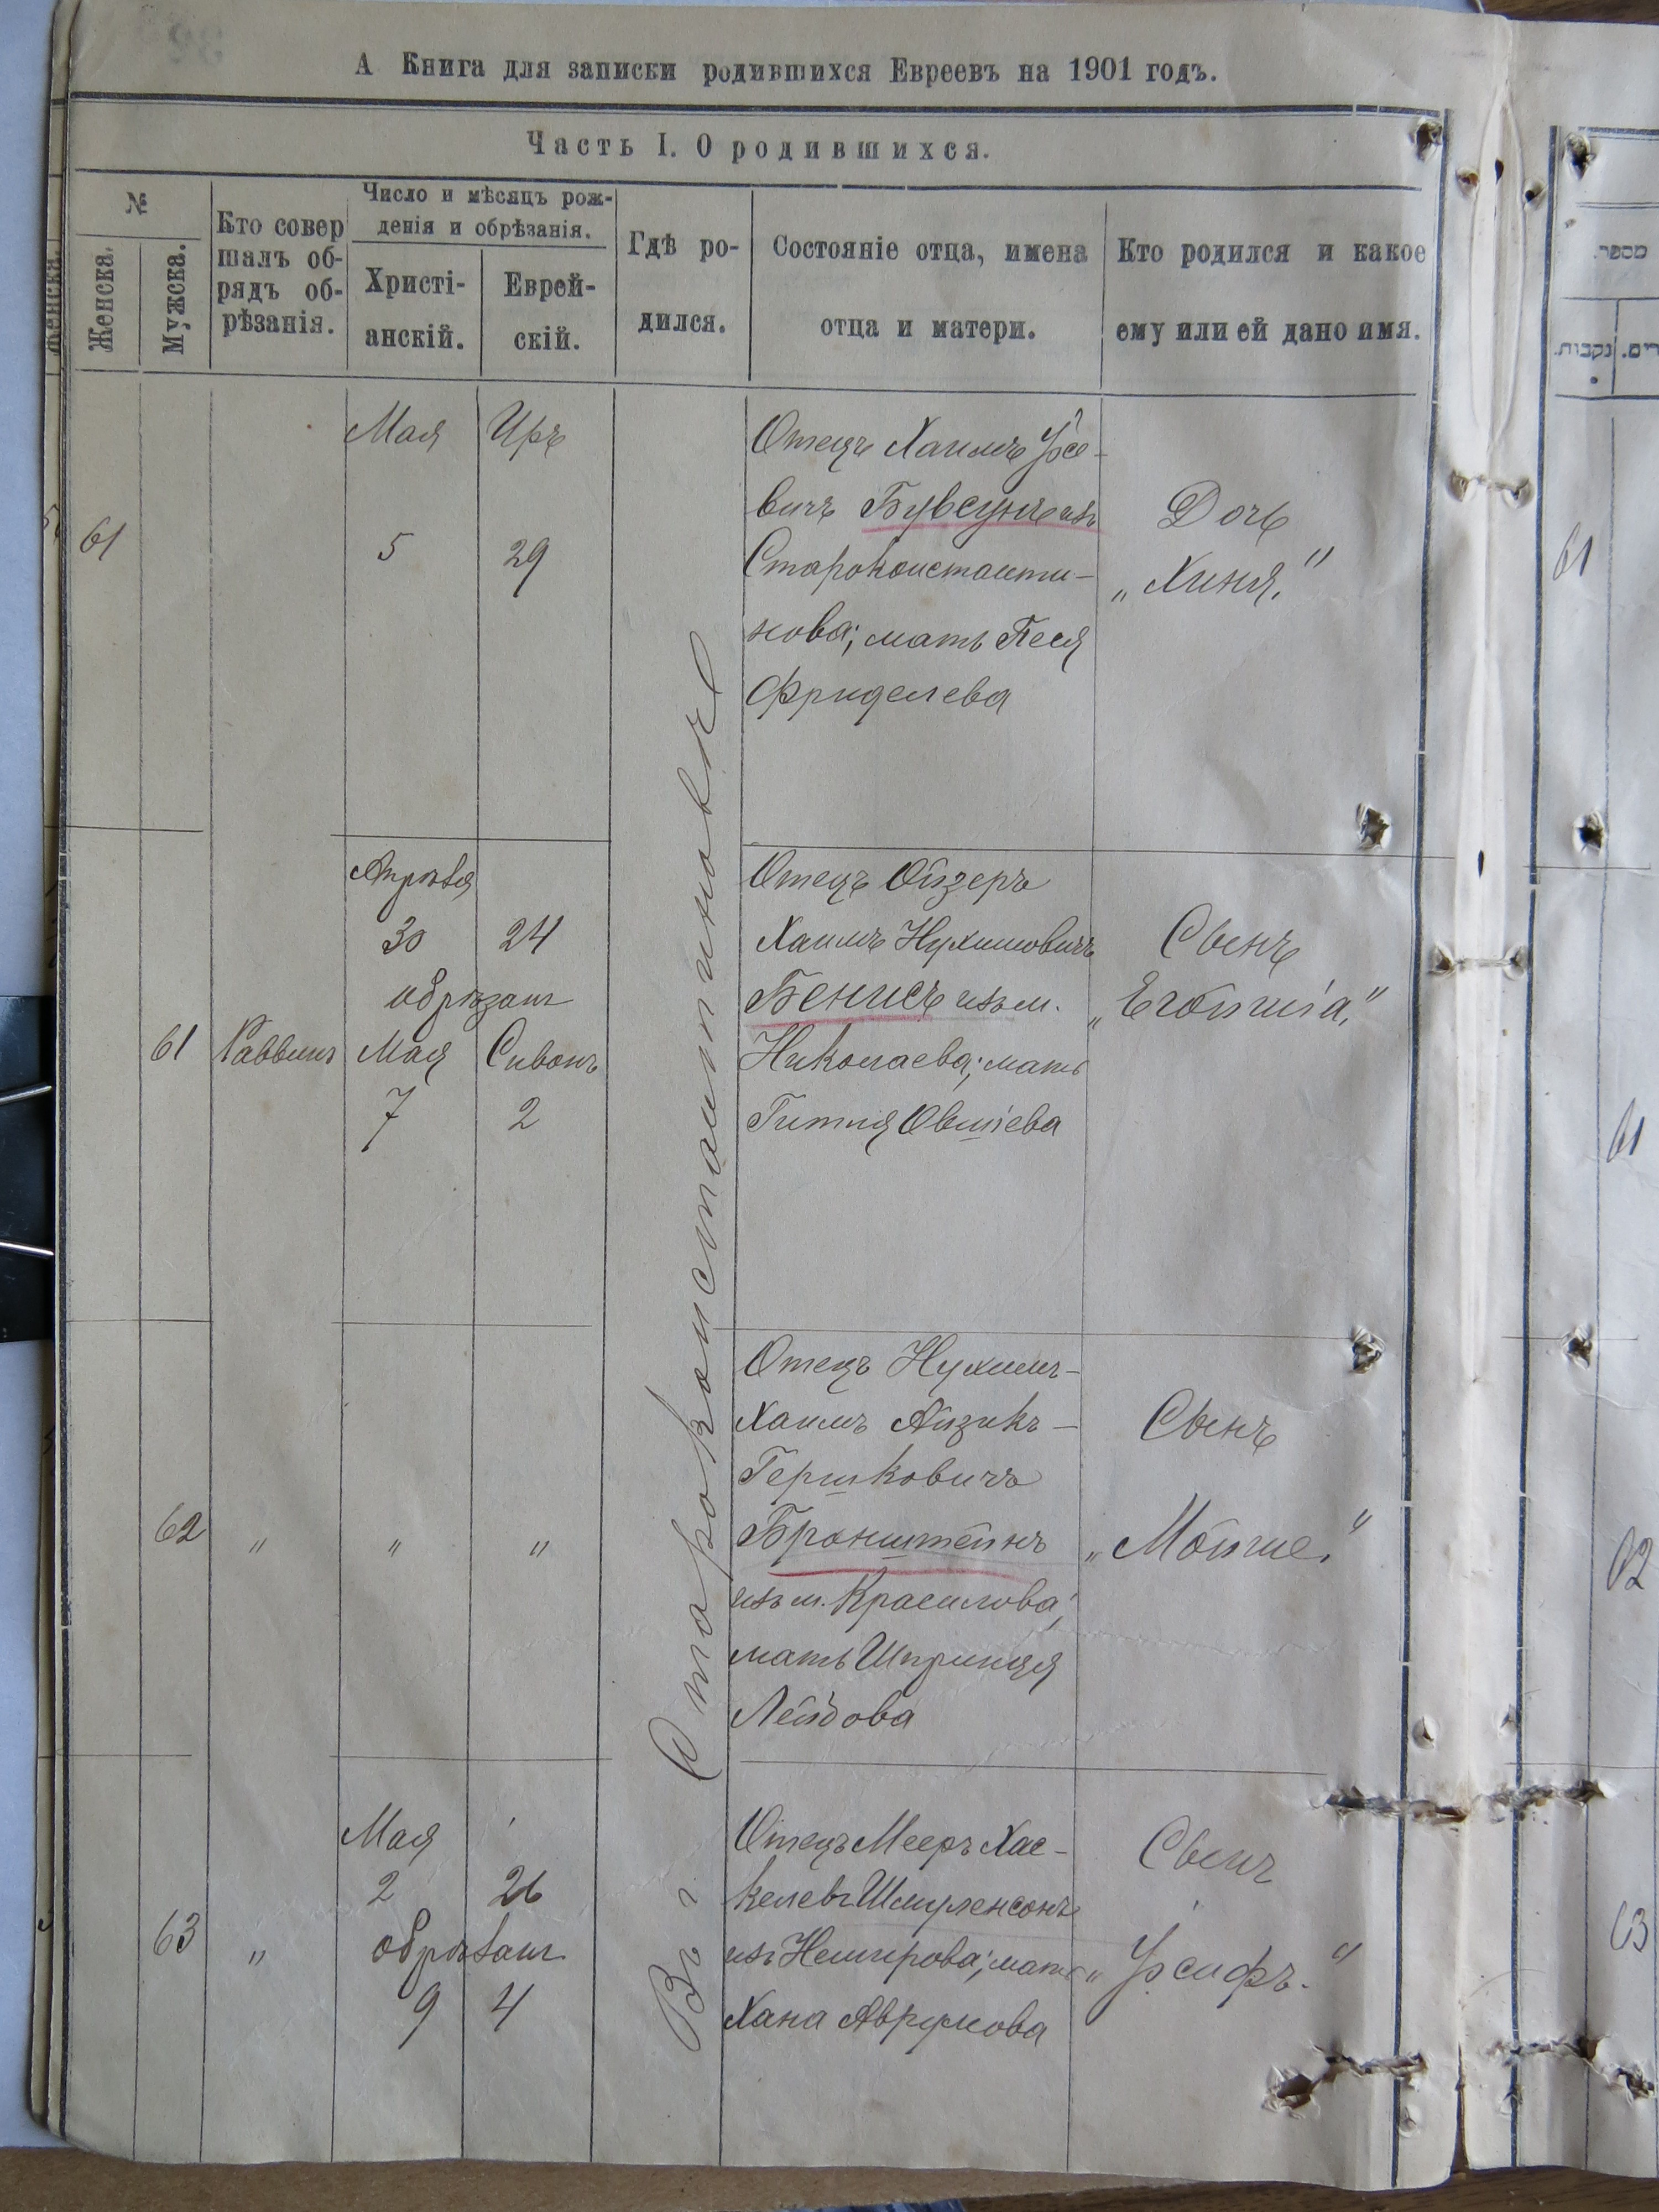 А Книга для записки родившихся Евреевъ на 1901 годъ.
Часть I. О родившихся.
№
Женска.
Мужска.
Кто совер
шалъ об-
рядъ об-
рѣзанія.
Число и мѣсяцъ рож-
денія и обрѣзанія.
Христі-
анскій.
Еврей-
скій.
Гдѣ ро-
дился.
Состояніе отца, имена
отца и матери.
Кто родился и какое
ему или ей дано имя.
Женска.
מספר.
נקבות.
Въ г. Староконстантиновѣ
61
Мая
5
Иръ
29
Отецъ Хаимъ
вичъ Бувсунъ изъ
Староконстанти-
нова; мать Песя
Фриделева
Дочь
„Хиня."
61
61
Раввинъ
Апрѣля
30 24
обрѣзан
Мая Сивонъ
7 2
Отецъ Ойзеръ
Хаимъ Нухимовичъ
Бенисъ изъ м.
Николаева; мать
Гитля Овшіева
Сынъ
61
62
„ „ „
Отецъ Нухимъ-
Хаимъ Айзикъ-
Гершковичъ
Бронштейнъ
изъ м. Красилова;
мать Шпринця
Лейбова
Сынъ
„Мойше."
62
63
„
Мая
2 26
обрѣзан
9 4
Отецъ Мееръ Хас-
келев. Шмуленсонъ
изъ Немирова; мать
Хана Аврумова
Сынъ
„Іосифъ."
63